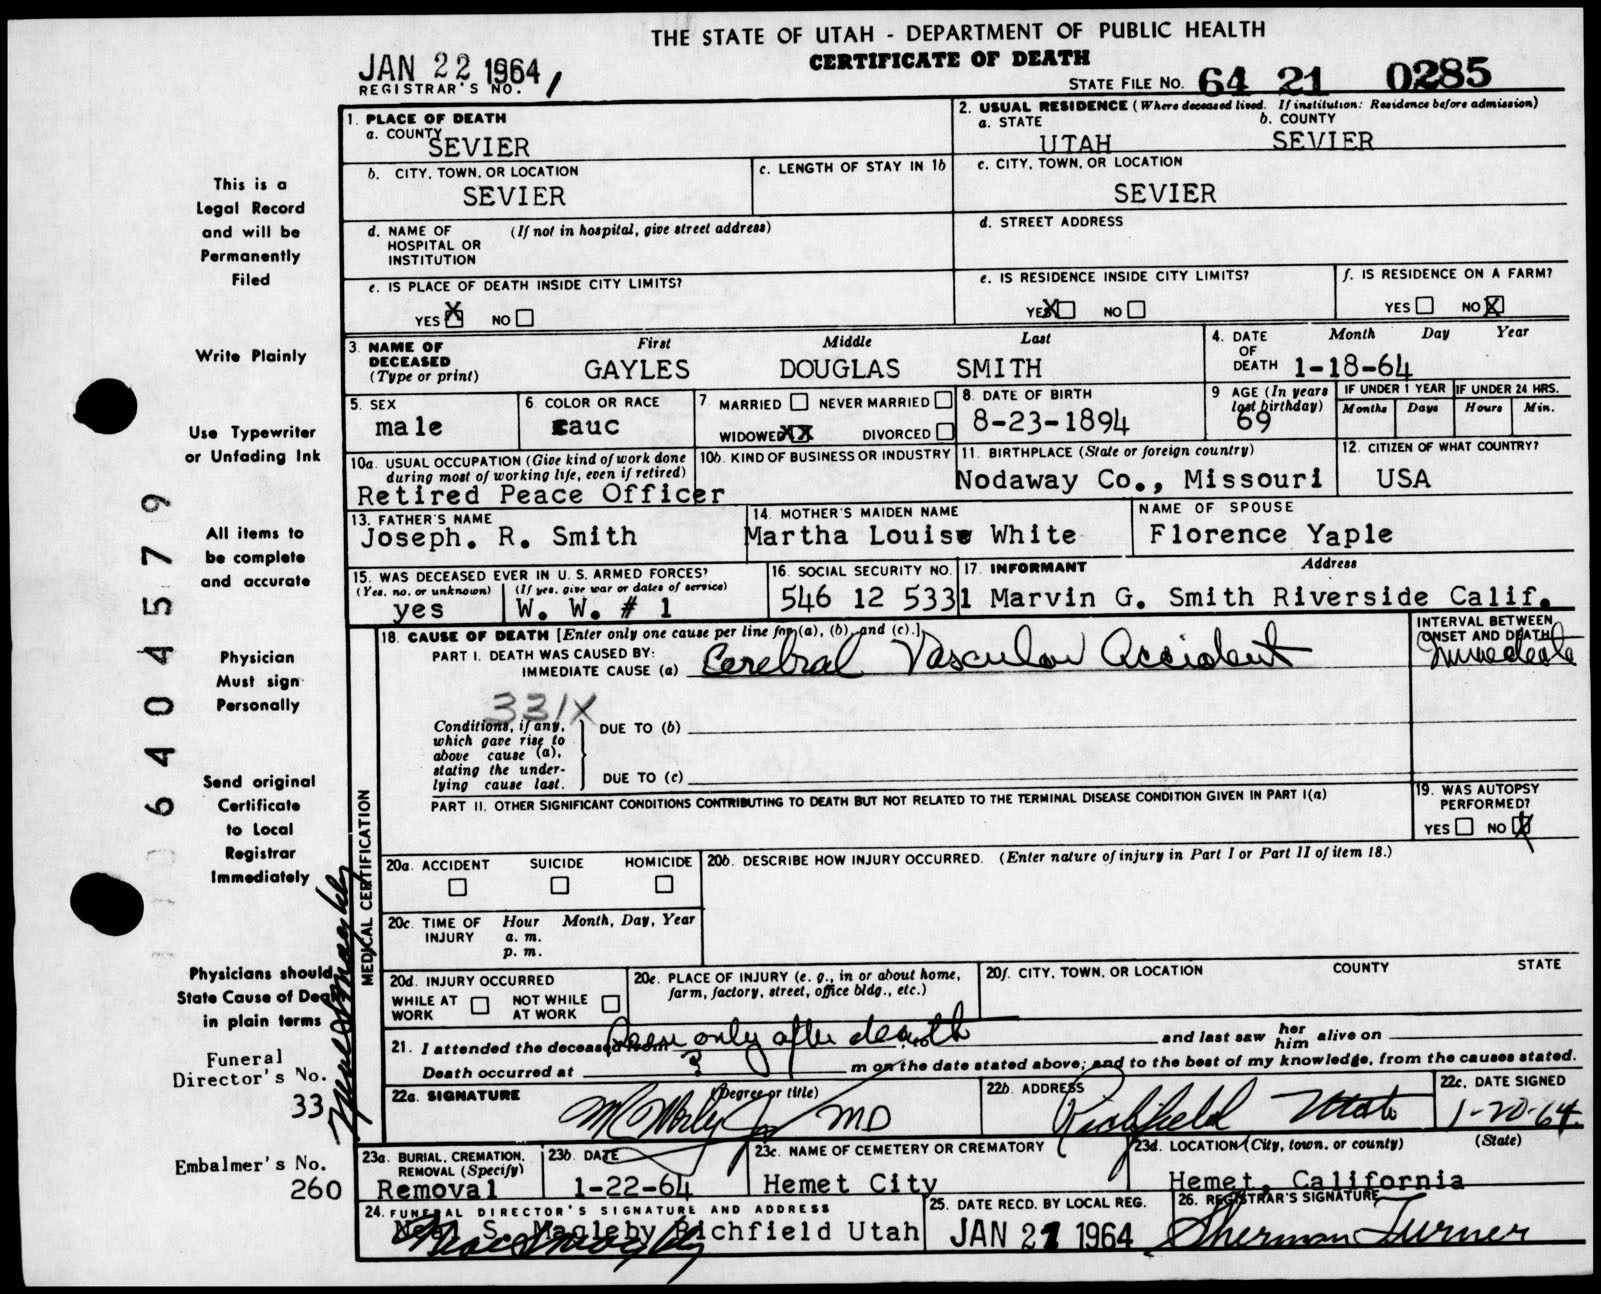 THE STATE OF UTAH - DEPARTMENT OF PUBLIC HEALTH
CERTIFICATE OF DEATH
JAN 22 1964
REGISTRAR'S NO. 1
STATE FILE NO. 64 21 0285
1. PLACE OF DEATH
a. COUNTY
SEVIER
2. USUAL RESIDENCE (Where deceased lived. If institution: Residence before admission)
a. STATE
UTAH
b. COUNTY
SEVIER
b. CITY, TOWN, OR LOCATION
SEVIER
c. LENGTH OF STAY IN 1b
c. CITY, TOWN, OR LOCATION
SEVIER
d. NAME OF HOSPITAL OR INSTITUTION (If not in hospital, give street address)
d. STREET ADDRESS
e. IS PLACE OF DEATH INSIDE CITY LIMITS?
YES X NO
e. IS RESIDENCE INSIDE CITY LIMITS?
YES X NO
f. IS RESIDENCE ON A FARM?
YES NO X
3. NAME OF DECEASED (Type or print)
First Middle Last
GAYLES DOUGLAS SMITH
4. DATE OF DEATH
Month Day Year
1-18-64
5. SEX
male
6. COLOR OR RACE
cauc
7. MARRIED NEVER MARRIED
WIDOWED XX DIVORCED
8. DATE OF BIRTH
8-23-1894
9 AGE (In years last birthday)
69
IF UNDER 1 YEAR
Months Days
IF UNDER 24 HRS.
Hours Min.
10a. USUAL OCCUPATION (Give kind of work done during most of working life, even if retired)
Retired Peace Officer
10b. KIND OF BUSINESS OR INDUSTRY
11. BIRTHPLACE (State or foreign country)
Nodaway Co., Missouri
12. CITIZEN OF WHAT COUNTRY?
USA
13. FATHER'S NAME
Joseph. R. Smith
14. MOTHER'S MAIDEN NAME
Martha Louise White
NAME OF SPOUSE
Florence Yaple
15. WAS DECEASED EVER IN U.S. ARMED FORCES?
(Yes, no, or unknown) (If yes, give war or dates of service)
yes W. W. # 1
16. SOCIAL SECURITY NO.
546 12 5331
17. INFORMANT Address
Marvin G. Smith Riverside Calif.
MEDICAL CERTIFICATION
18. CAUSE OF DEATH [Enter only one cause per line for (a), (b), and (c).]
PART I. DEATH WAS CAUSED BY:
IMMEDIATE CAUSE (a) Cerebral Vascular Accident
INTERVAL BETWEEN ONSET AND DEATH
Immediate
331X
Conditions, if any, which gave rise to above cause (a), stating the underlying cause last.
DUE TO (b)
DUE TO (c)
PART II. OTHER SIGNIFICANT CONDITIONS CONTRIBUTING TO DEATH BUT NOT RELATED TO THE TERMINAL DISEASE CONDITION GIVEN IN PART I(a)
19. WAS AUTOPSY PERFORMED?
YES NO X
20a. ACCIDENT SUICIDE HOMICIDE
20b. DESCRIBE HOW INJURY OCCURRED. (Enter nature of injury in Part I or Part II of item 18.)
20c. TIME OF INJURY Hour Month, Day, Year
a. m.
p. m.
20d. INJURY OCCURRED
WHILE AT WORK NOT WHILE AT WORK
20e. PLACE OF INJURY (e. g., in or about home, farm, factory, street, office bldg., etc.)
20f. CITY, TOWN, OR LOCATION COUNTY STATE
21. I attended the deceased from Seen only after death to and last saw her him alive on
Death occurred at ? m on the date stated above; and to the best of my knowledge, from the causes stated.
22a. SIGNATURE (Degree or title)
MD
22b. ADDRESS
Richfield Utah
22c. DATE SIGNED
1-20-64
23a. BURIAL, CREMATION, REMOVAL (Specify)
Removal
23b. DATE
1-22-64
23c. NAME OF CEMETERY OR CREMATORY
Hemet City
23d. LOCATION (City, town, or county) (State)
Hemet, California
24. FUNERAL DIRECTOR'S SIGNATURE AND ADDRESS
S. Magleby Richfield Utah
25. DATE RECD. BY LOCAL REG.
JAN 21 1964
26. REGISTRAR'S SIGNATURE
Sherman Turner
This is a
Legal Record
and will be
Permanently
Filed
Write Plainly
Use Typewriter
or Unfading Ink
All items to
be complete
and accurate
Physician
Must sign
Personally
Send original
Certificate
to Local
Registrar
Immediately
Physicians should
State Cause of Dea
in plain terms
Funeral
Director's No.
33
Embalmer's No.
260
6404579